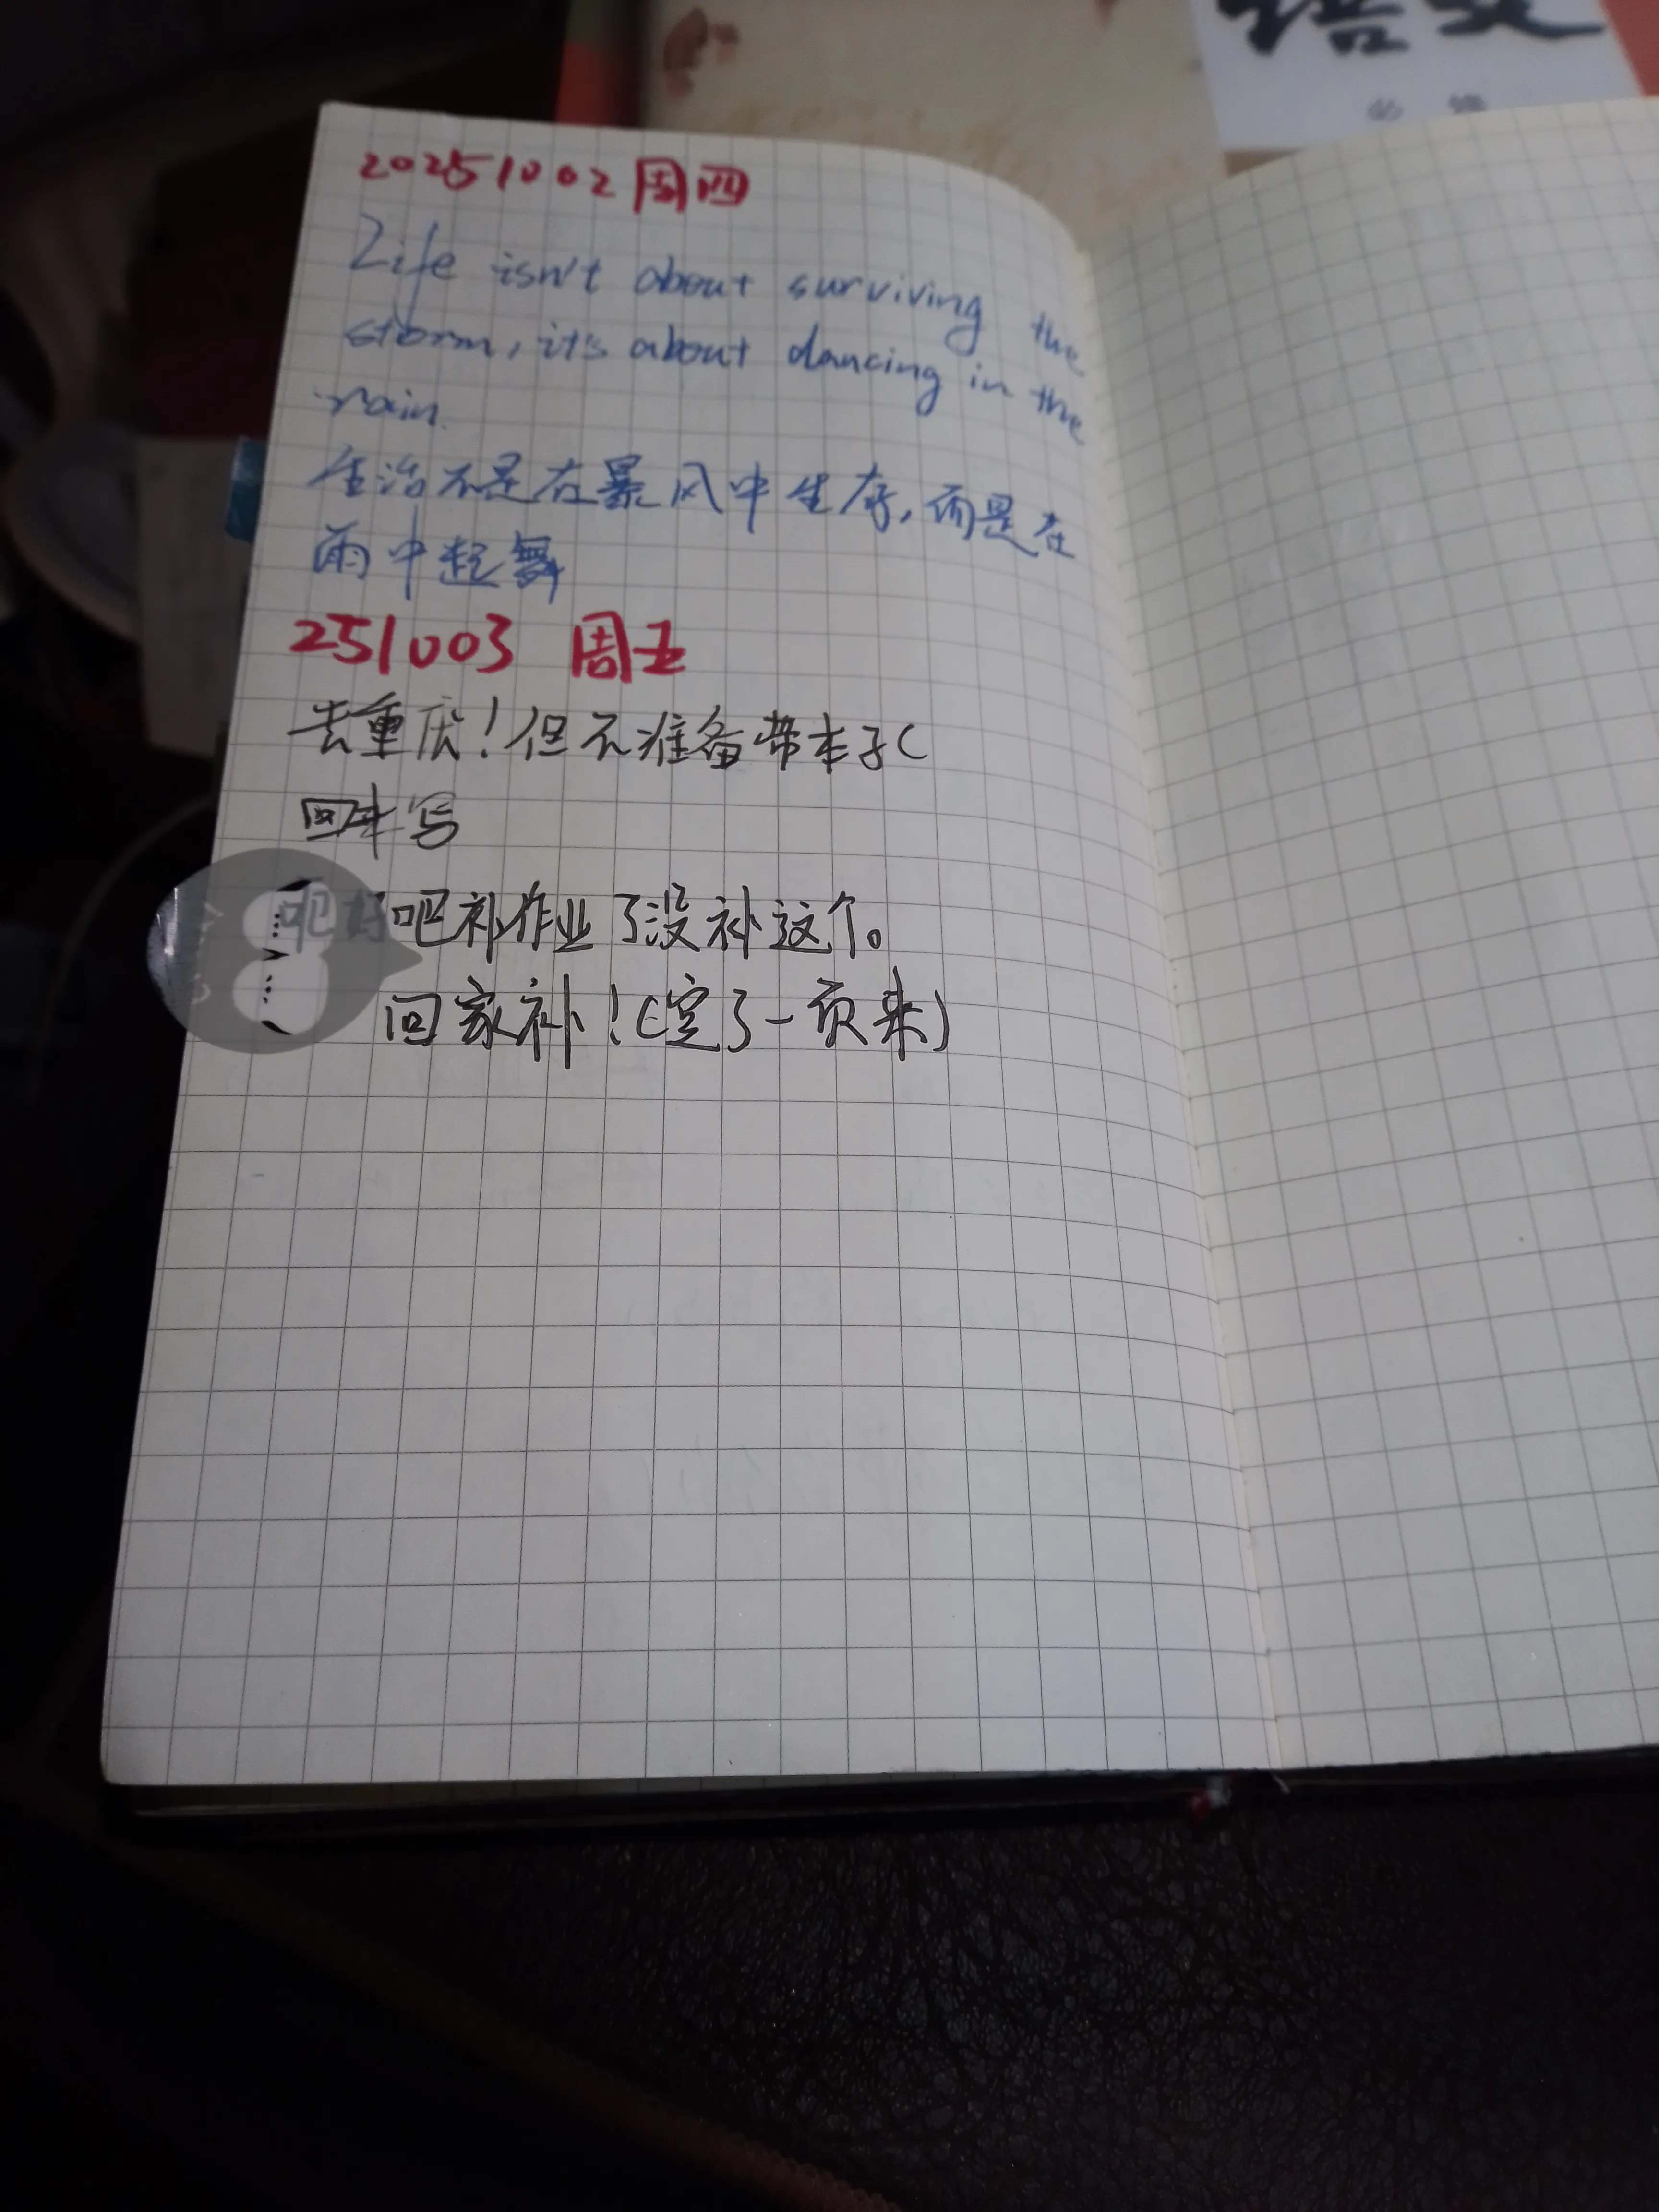 语文
必修
20251002 周四
Life isn't about surviving the
storm, it's about dancing in the
rain.
生活不是在暴风中生存,而是在
雨中起舞
251003 周五
去重庆!但不准备带本子(
回来写
吧好吧补作业了没补这个。
回家补!(空了一页来)